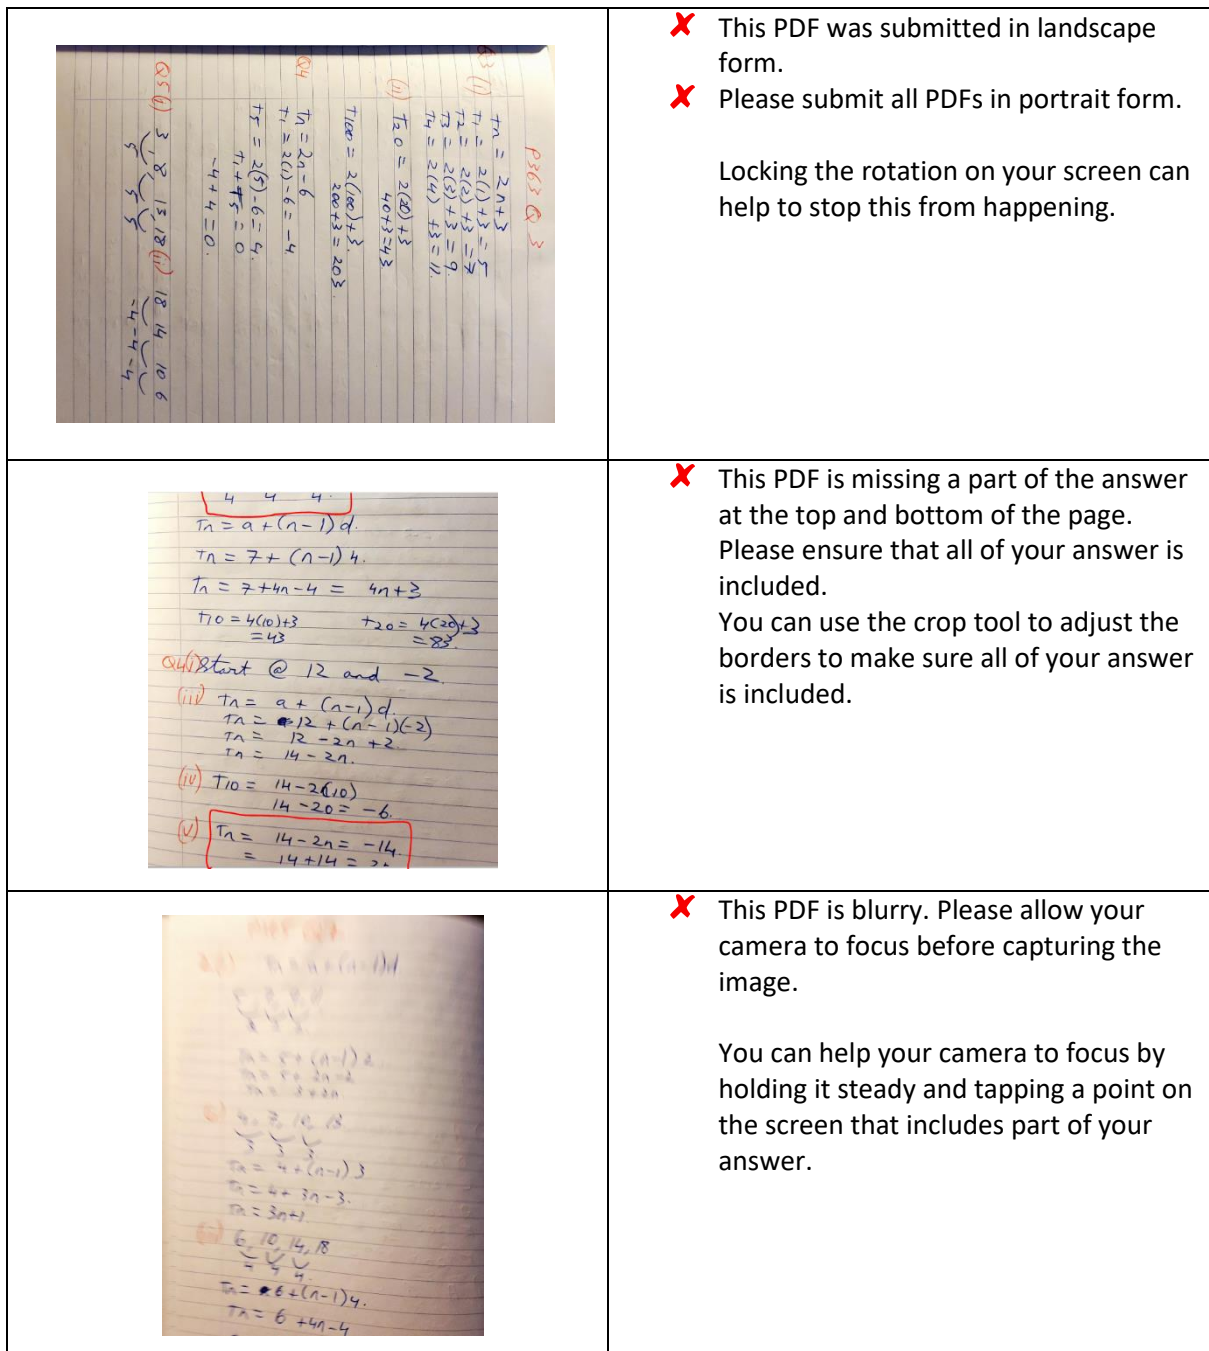 P363 Q3
Q3 (i) Tn = 2n+3
T1 = 2(1)+3 = 5
T2 = 2(2)+3 = 7
T3 = 2(3)+3 = 9.
T4 = 2(4)+3 = 11.
(ii) T20 = 2(20)+3
40+3=43
T100 = 2(100)+3.
200+3 = 203.
Q4 Tn = 2n-6
T1 = 2(1)-6 = -4
T5 = 2(5)-6 = 4.
T1 + T5 = 0
-4+4=0.
Q5(i) 3, 8, 13, 18 (ii) 18 14 10 6
5 5 5 -4 -4 -4
✘ This PDF was submitted in landscape
form.
✘ Please submit all PDFs in portrait form.
Locking the rotation on your screen can
help to stop this from happening.
4 4 4.
Tn = a+(n-1)d.
Tn = 7+(n-1)4.
Tn = 7+4n-4 = 4n+3
T10 = 4(10)+3 T20 = 4(20)+3
=43 = 83.
Q4(i) Start @ 12 and -2
(iii) Tn = a + (n-1)d.
Tn = 12 + (n-1)(-2)
Tn = 12 -2n +2.
Tn = 14 - 2n.
(iv) T10 = 14-2(10)
14 -20 = -6.
(v) Tn = 14-2n = -14.
= 14+14 =
✘ This PDF is missing a part of the answer
at the top and bottom of the page.
Please ensure that all of your answer is
included.
You can use the crop tool to adjust the
borders to make sure all of your answer
is included.
Tn = 5+(n-1)2
Tn = 5+ 2n-2
Tn = 3+2n
4, 7, 10, 13
3 3 3
Tn = 4+(n-1)3
Tn = 4+ 3n-3.
Tn = 3n+1
6, 10, 14, 18
4 4 4.
Tn = 6+(n-1)4.
Tn = 6 +4n-4
✘ This PDF is blurry. Please allow your
camera to focus before capturing the
image.
You can help your camera to focus by
holding it steady and tapping a point on
the screen that includes part of your
answer.